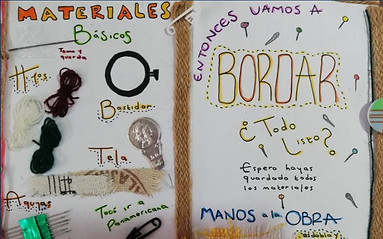 MATERIALES
Básicos
Toma y
guarda
Hilos
Bastidor
Tela
Agujas
Tocó ir a
Panamericana
ENTONCES VAMOS A
BORDAR
¿Todo
Listo?
Espero hayas
guardado todos
los materiales
MANOS a la OBRA